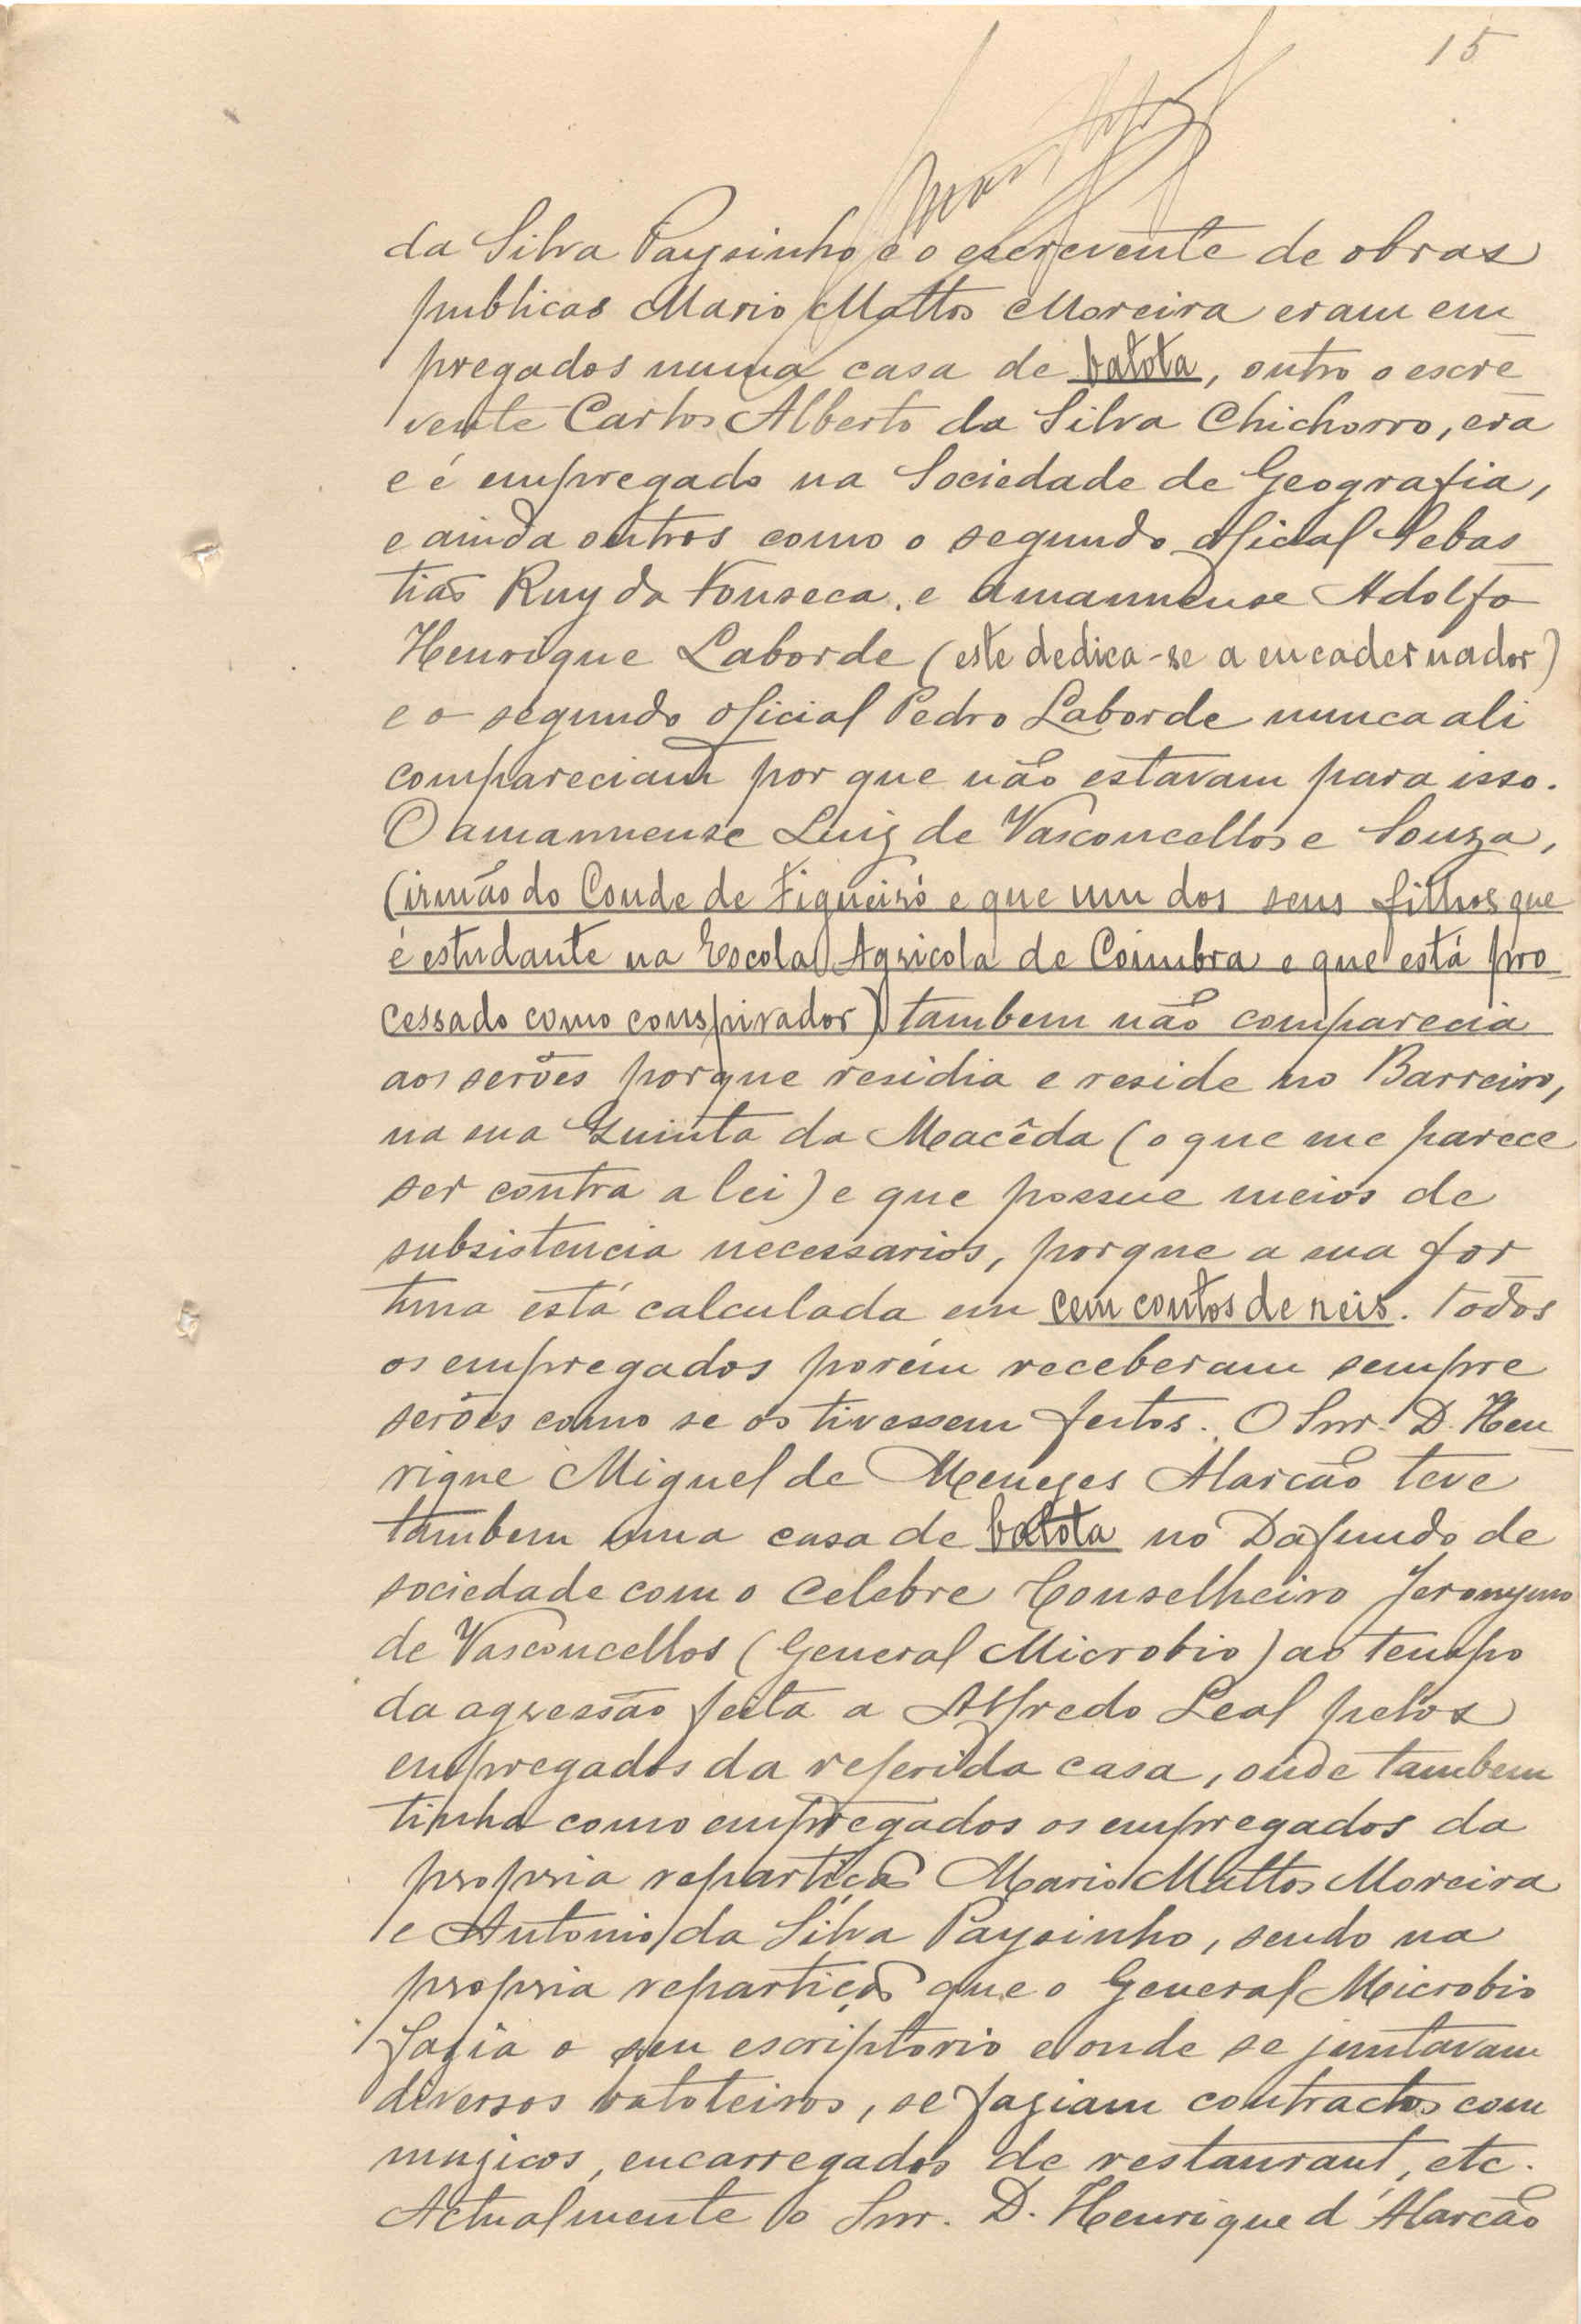 15
da Silva Paysinho e o escrevente de obras
publicas Mario Mattos Moreira eram em
pregados numa casa de batota, outro o escre
vente Carlos Alberto da Silva Chichorro, era
e é empregado na Sociedade de Geografia,
e ainda outros como o segundo oficial Sebas
tião Ruy da Fonseca, e amannuense Adolfo
Henrique Laborde (este dedica-se a encadernador)
e o segundo oficial Pedro Laborde nunca ali
compareciam por que não estavam para isso.
O amannuense Luiz de Vasconcellos e Souza,
(irmão do Conde de Figueiró e que um dos seus filhos que
é estudante na Escola Agricola de Coimbra e que está pro=
cessado como conspirador) tambem não comparecia
aos serões porque residia e reside no Barreiro,
na sua Quinta da Macêda (o que me parece
ser contra a lei) e que possue meios de
subsistencia necessarios, porque a sua for
tuna está calculada em cem contos de reis. Todos
os empregados porém receberam sempre
serões como se os tivessem feitos. O Snr. D. Hen
rique Miguel de Menezes Alarcão teve
tambem uma casa de batota no Dafundo de
sociedade com o celebre Conselheiro Jeronymo
de Vasconcellos (General Microbio) ao tempo
da agressão feita a Alfredo Leal pelos
empregados da referida casa, onde tambem
tinha como empregados os empregados da
propria repartição Mario Mattos Moreira
e Antonio da Silva Paysinho, sendo na
propria repartição que o General Microbio
fazia o seu escriptorio e onde se juntavam
diversos batoteiros, se faziam contractos com
muzicos, encarregados de restaurant, etc.
Actualmente o Snr. D. Henrique d'Alarcão